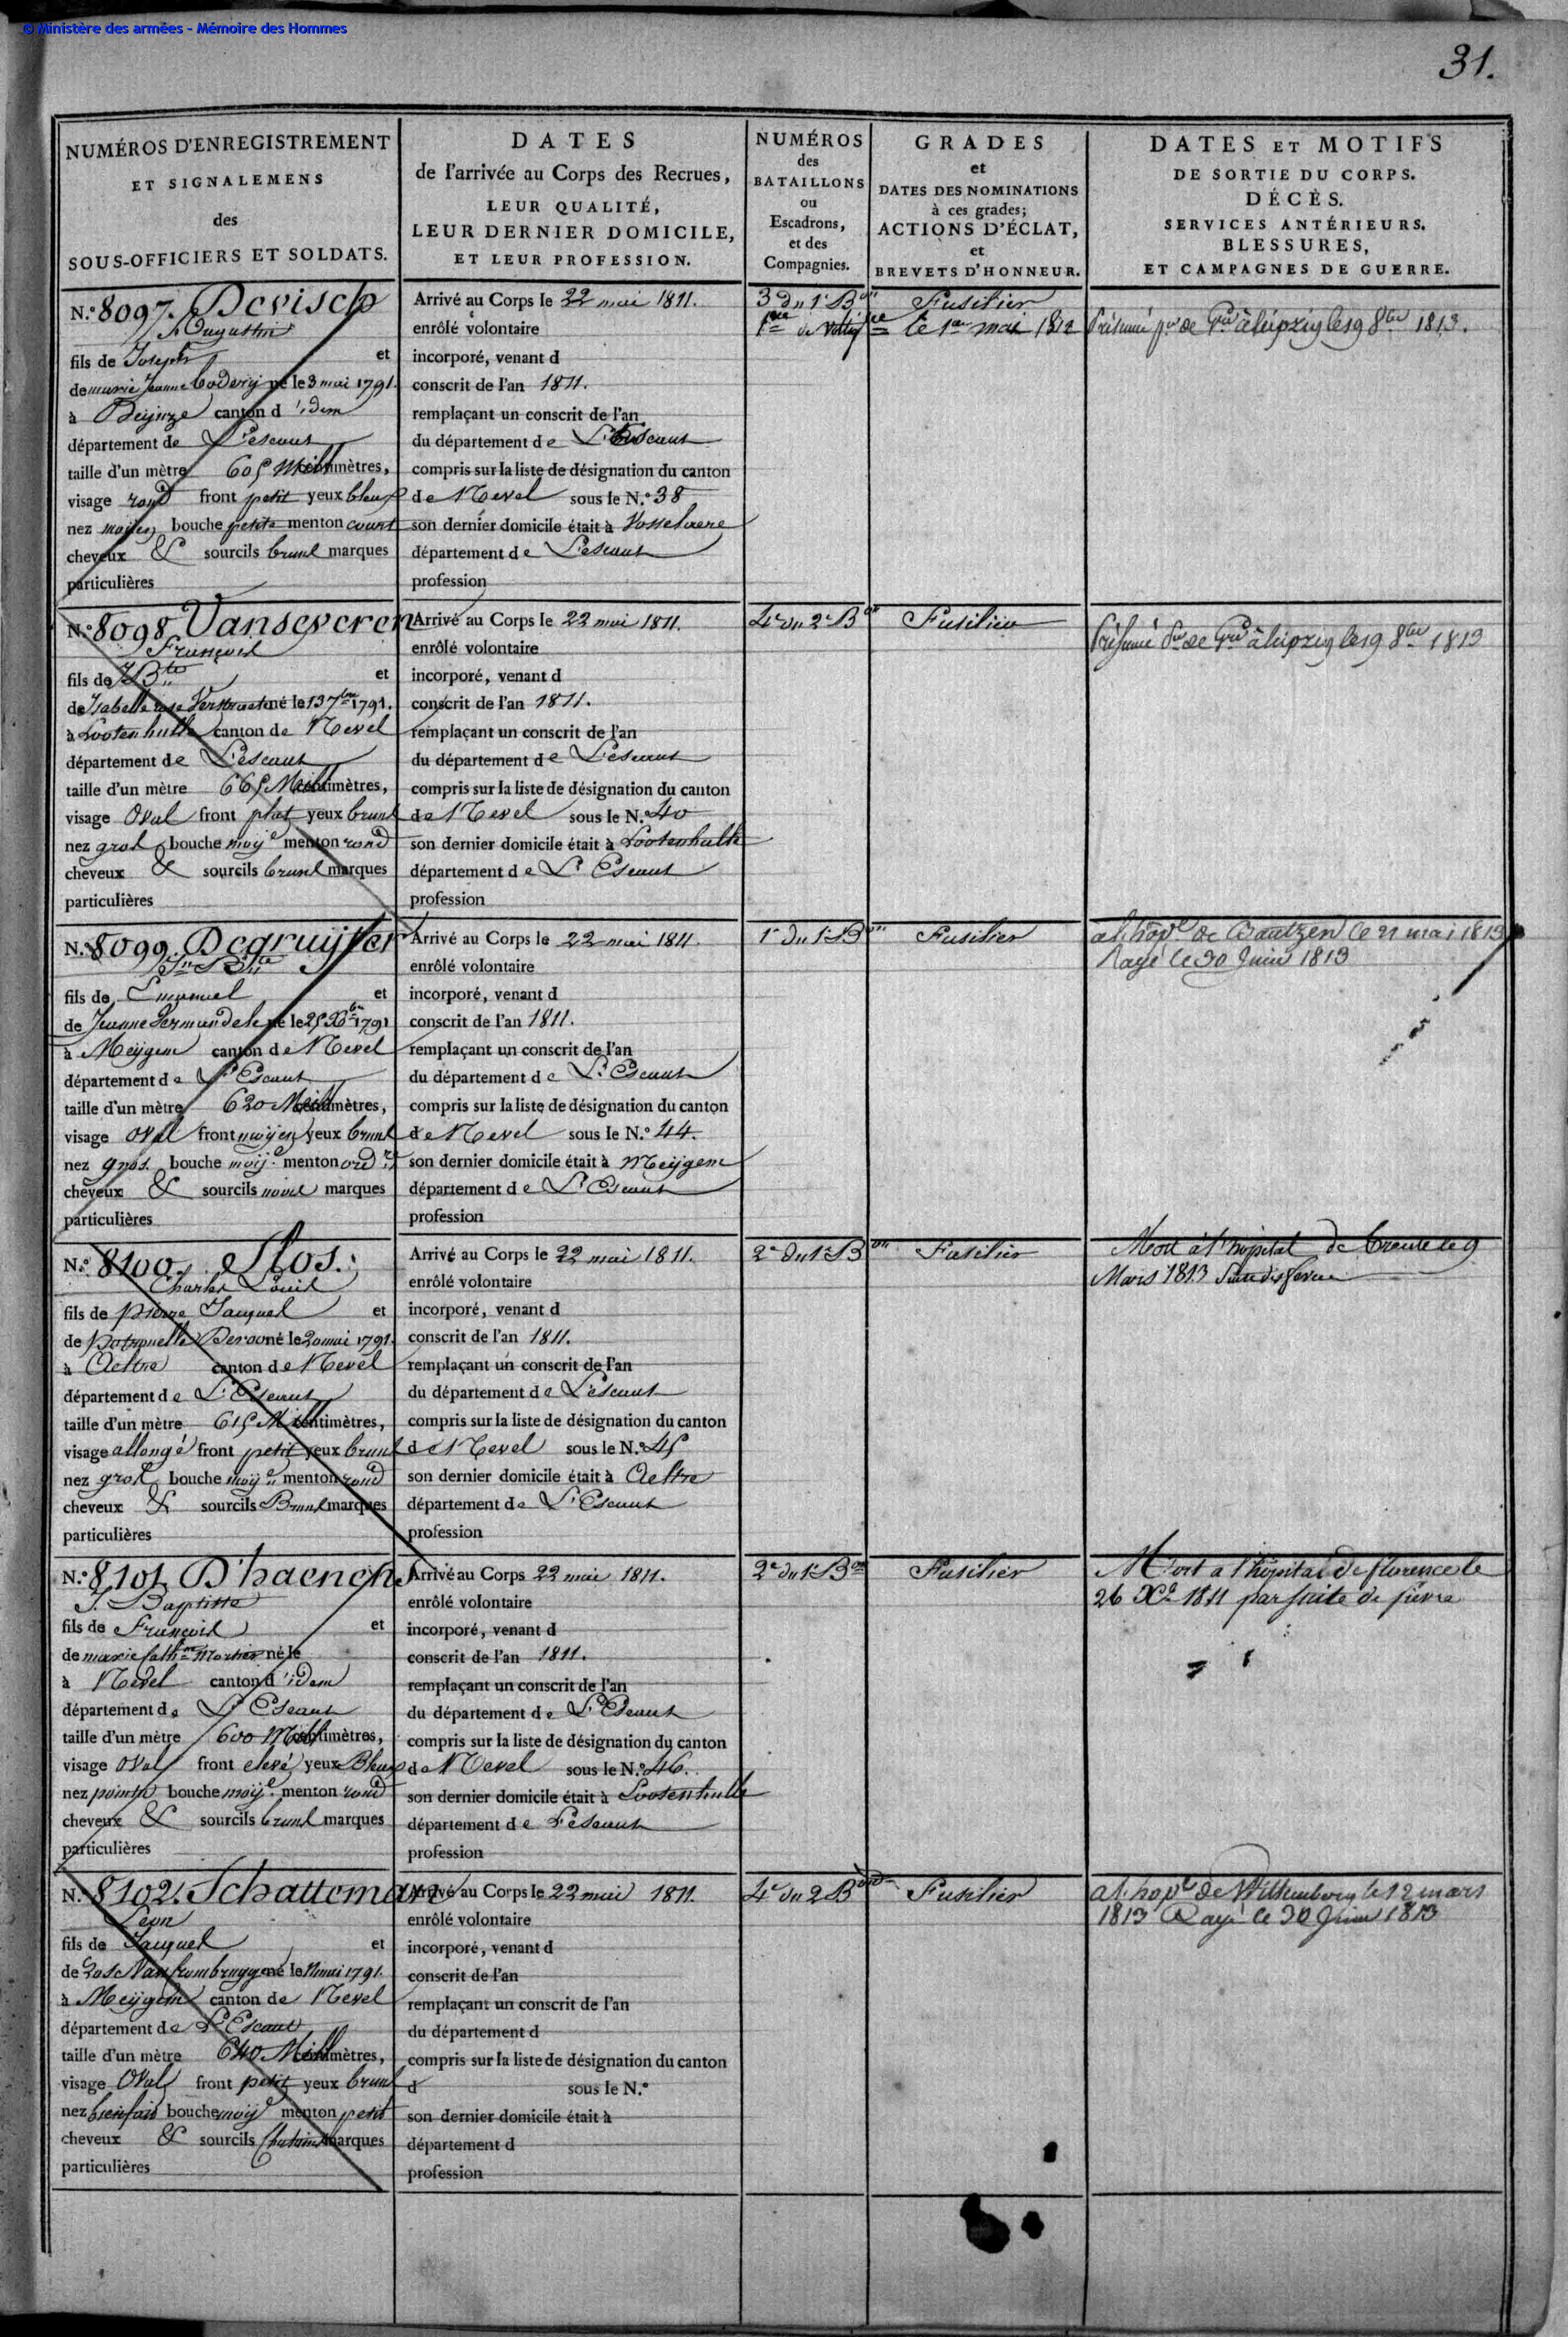 © Ministère des armées - Mémoire des Hommes
31.
NUMÉROS D'ENREGISTREMENT
ET SIGNALEMENS
des
SOUS-OFFICIERS ET SOLDATS.
DATES
de l'arrivée au Corps des Recrues,
LEUR QUALITÉ,
LEUR DERNIER DOMICILE,
ET LEUR PROFESSION.
NUMÉROS
des
BATAILLONS
ou
Escadrons,
et des
Compagnies.
GRADES
et
DATES DES NOMINATIONS
à ces grades;
ACTIONS D'ÉCLAT,
et
BREVETS D'HONNEUR.
DATES ET MOTIFS
DE SORTIE DU CORPS.
DÉCÈS.
SERVICES ANTÉRIEURS.
BLESSURES,
ET CAMPAGNES DE GUERRE.
N.° 8097. Devisch
Augustin
fils de Joseph et
de marie Jeanne né le 3 mai 1791.
à Deijnze canton d'idem
département de L'escaut
taille d'un mètre 605 Mill
visage rond front petit yeux bleus
nez moyen bouche petite menton court
cheveux & sourcils bruns marques
particulières
Arrivé au Corps le 22 mai 1811.
enrôlé volontaire
incorporé, venant d
conscrit de l'an 1811.
remplaçant un conscrit de l'an
du département de L'Escaut
compris sur la liste de désignation du canton
de Nevel sous le N.° 38
son dernier domicile était à Vosselaere
département de L'escaut
profession
3e du 1r Bon
Fusilier
le 1er mai 1812
Présumé per de Gre à leipzig le 19 8bre 1813.
N.° 8098 Vanseveren
François
fils de J Bte et
de Isabelle né le 13 7bre 1791.
à Lootenhulle canton de Nevel
département de L'escaut
taille d'un mètre 665 Mill
visage Oval front plat yeux bruns
nez gros bouche moye menton rond
cheveux & sourcils bruns marques
particulières
Arrivé au Corps le 22 mai 1811.
enrôlé volontaire
incorporé, venant d
conscrit de l'an 1811.
remplaçant un conscrit de l'an
du département de L'escaut
compris sur la liste de désignation du canton
de Nevel sous le N.° 40
son dernier domicile était à Lootenhulle
département de L'Escaut
profession
4e du 2e Bon
Fusilier
Présumé per de Gre à leipzig le 19 8bre 1813
N.° 8099. Degruijter
Jn Bte
fils de Emanuel et
de Jeanne né le 25 Xbre 1791
à Meijgem canton de Nevel
département de L'Escaut
taille d'un mètre 620 Mill
visage Oval front moyen yeux bruns
nez gros. bouche moije menton
cheveux & sourcils noirs marques
particulières
Arrivé au Corps le 22 mai 1811.
enrôlé volontaire
incorporé, venant d
conscrit de l'an 1811.
remplaçant un conscrit de l'an
du département de L'Escaut
compris sur la liste de désignation du canton
de Nevel sous le N.° 44.
son dernier domicile était à Meijgem
département de L'Escaut
profession
1r du 1r Bon
Fusilier
al. hopal de Bautzen le 21 mai 1813
Rayé le 30 Juin 1813
N.° 8100. Slos.
Charles Louis
fils de pierre Jacques et
de né le 20 mai 1791.
à Aeltre canton de Nevel
département de L'Escaut
taille d'un mètre 615 Mill
visage allongé front petit yeux bruns
nez gros bouche moije menton rond
cheveux & sourcils Bruns marques
particulières
Arrivé au Corps le 22 mai 1811.
enrôlé volontaire
incorporé, venant d
conscrit de l'an 1811.
remplaçant un conscrit de l'an
du département de L'escaut
compris sur la liste de désignation du canton
de Nevel sous le N.° 45
son dernier domicile était à Aeltre
département de L'Escaut
profession
2e du 1r Bon
Fusilier
Mort à l'hôpital de le 9
Mars 1813 Suite de fievre
N.° 8101 D'haenens
J. Baptiste
fils de François et
de marie né le
à Nevel canton d'idem
département de L'Escaut
taille d'un mètre 600 Mill
visage Oval front elevé yeux Bleus
nez pointu bouche moije menton rond
cheveux & sourcils bruns marques
particulières
Arrivé au Corps 22 mai 1811.
enrôlé volontaire
incorporé, venant d
conscrit de l'an 1811.
remplaçant un conscrit de l'an
du département de L'Escaut
compris sur la liste de désignation du canton
de Nevel sous le N.° 46.
son dernier domicile était à Lootenhulle
département de L'escaut
profession
2e du 1r Bon
Fusilier
Mort a l'hôpital de florence le
26 Xe 1811 par suite de fievre
N.° 8102. Schatteman
Leon
fils de Jacques et
de né le 11 mai 1791.
à Meijgem canton de Nevel
département de L'Escaut
taille d'un mètre 640 Mill
visage Oval front petit yeux bruns
nez bienfait bouche moije menton petit
cheveux & sourcils marques
particulières
Arrivé au Corps le 22 mai 1811.
enrôlé volontaire
incorporé, venant d
conscrit de l'an
remplaçant un conscrit de l'an
du département d
compris sur la liste de désignation du canton
d sous le N.°
son dernier domicile était à
département d
profession
4e du 2 Bon
Fusilier
al. hopal de Wittemberg le 12 mars
1813 Rayé le 30 Juin 1813